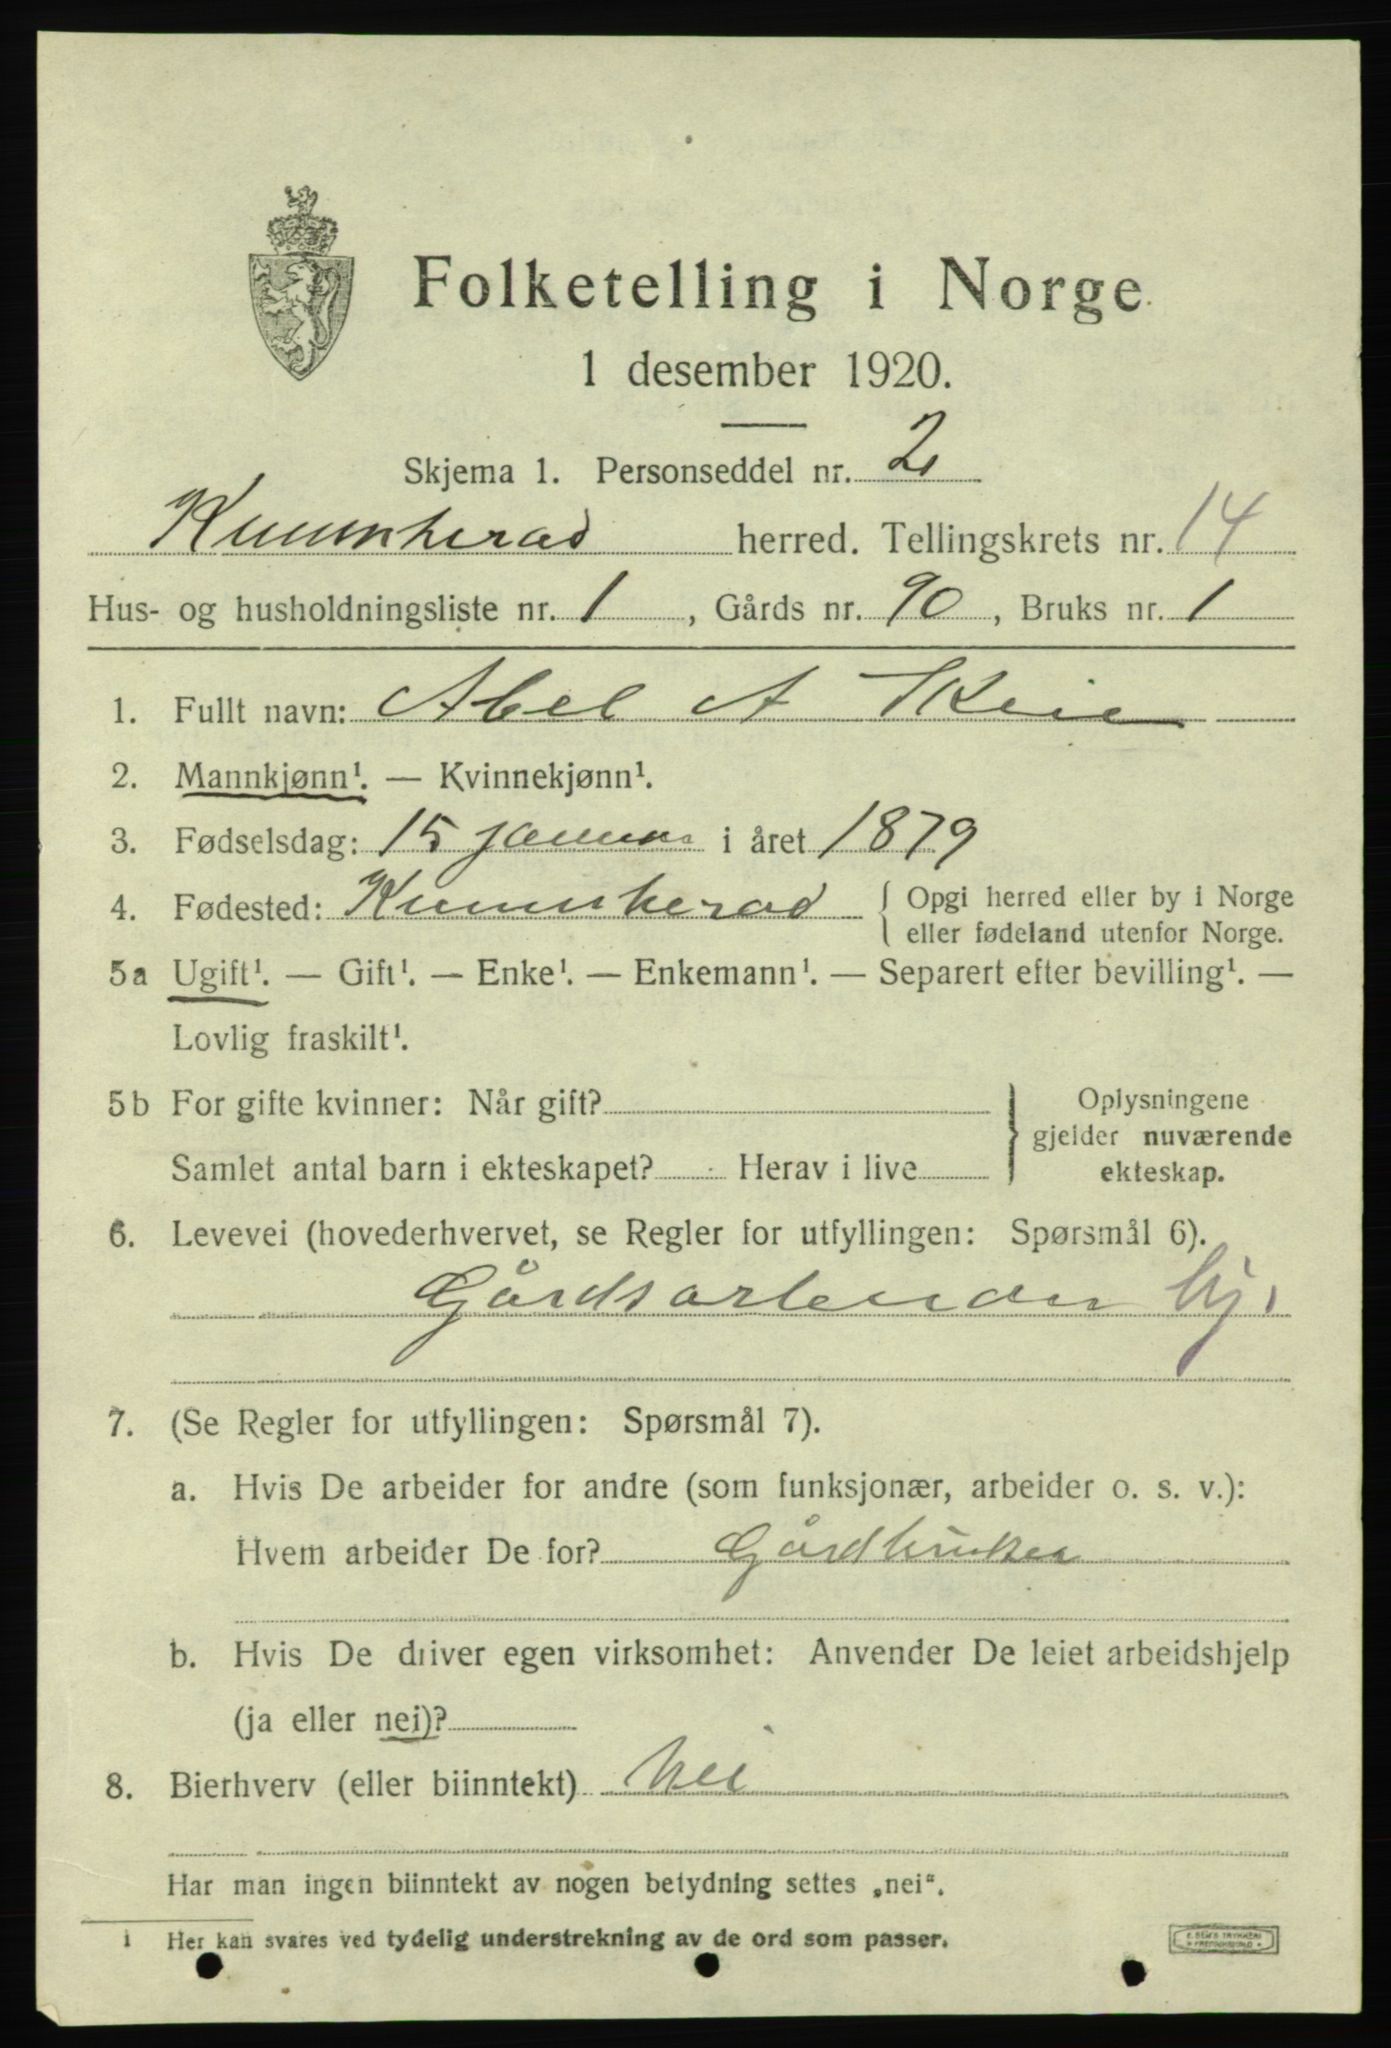 Folketelling i Norge
1 desember 1920.
Skjema 1. Personseddel nr. 2
Kvinnherad herred. Tellingskrets nr. 14
Hus- og husholdningsliste nr. 1, Gårds nr. 90, Bruks nr. 1
1. Fullt navn: Abel A Skeie
2. Mannkjønn¹. — Kvinnekjønn¹.
3. Fødselsdag: 15 januar i året 1879
4. Fødested: Kvinnherad { Opgi herred eller by i Norge
eller fødeland utenfor Norge.
5a Ugift¹. — Gift¹. — Enke¹. — Enkemann¹. — Separert efter bevilling¹. —
Lovlig fraskilt¹.
5b For gifte kvinner: Når gift? } Oplysningene
gjelder nuværende
Samlet antal barn i ekteskapet? Herav i live
ekteskap.
6. Levevei (hovederhvervet, se Regler for utfyllingen: Spørsmål 6).
Gårdsarbeider hj.
7. (Se Regler for utfyllingen: Spørsmål 7).
a. Hvis De arbeider for andre (som funksjonær, arbeider o. s. v.):
Hvem arbeider De for? Gårdbruker
b. Hvis De driver egen virksomhet: Anvender De leiet arbeidshjelp
(ja eller nei)?
8. Bierhverv (eller biinntekt) Nei
Har man ingen biinntekt av nogen betydning settes „nei“.
1 Her kan svares ved tydelig understrekning av de ord som passer.